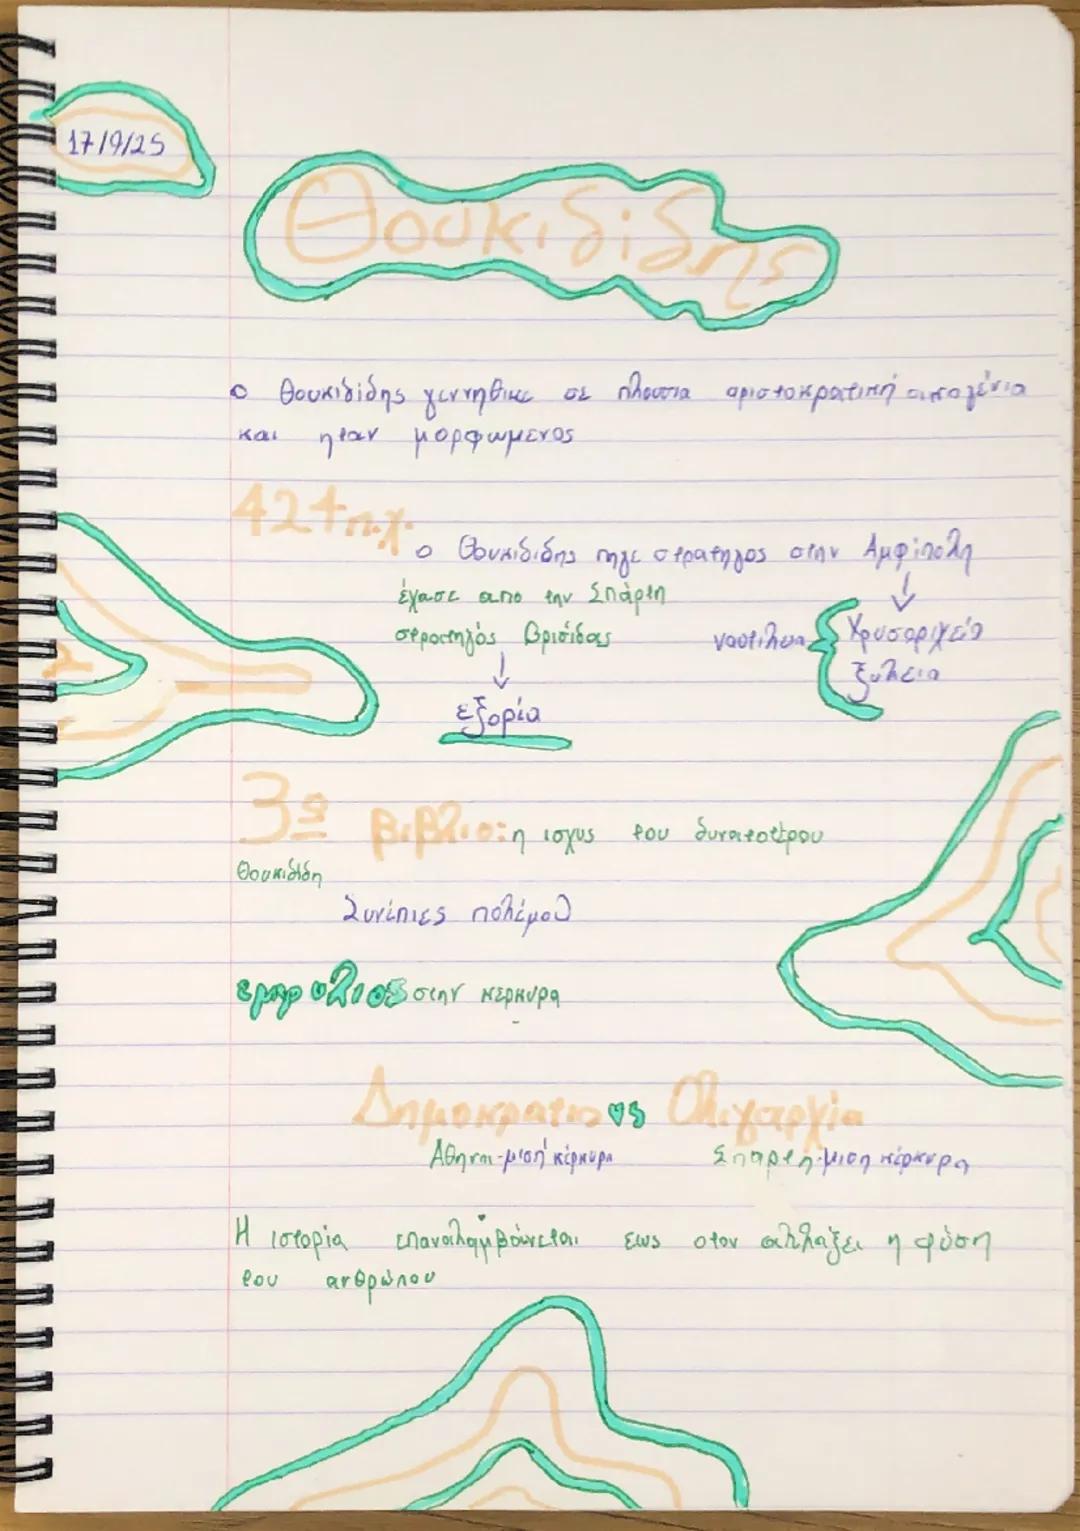 17/9/25
Θουκιδίδης
ο Θουκιδίδης γεννηθικε σε πλουσια αριστοκρατική οικογένια
και ηταν μορφωμενος
424 π.χ.
ο Θουκιδιδης πηγε στρατηγος στην Αμφίπολη
έχασε απο την Σπάρτη
στρατηγός Βρισίδας
ναυτιλια { Χρυσοριχεία
ξυλεια
εξορία
3ο βιβλιο: η ισχυς του δυνατοτέρου
Θουκιδιδη
Συνέπιες πολέμου
εμφυλιος στην κερκυρα
Δημοκρατια vs Ολιγαρχία
Αθηνα-μιση κέρκυρα Σπαρτη-μιση κέρκυρα
Η ιστορία επαναλαμβάνεται εως οτου αλλάξει η φύση
του ανθρώπου